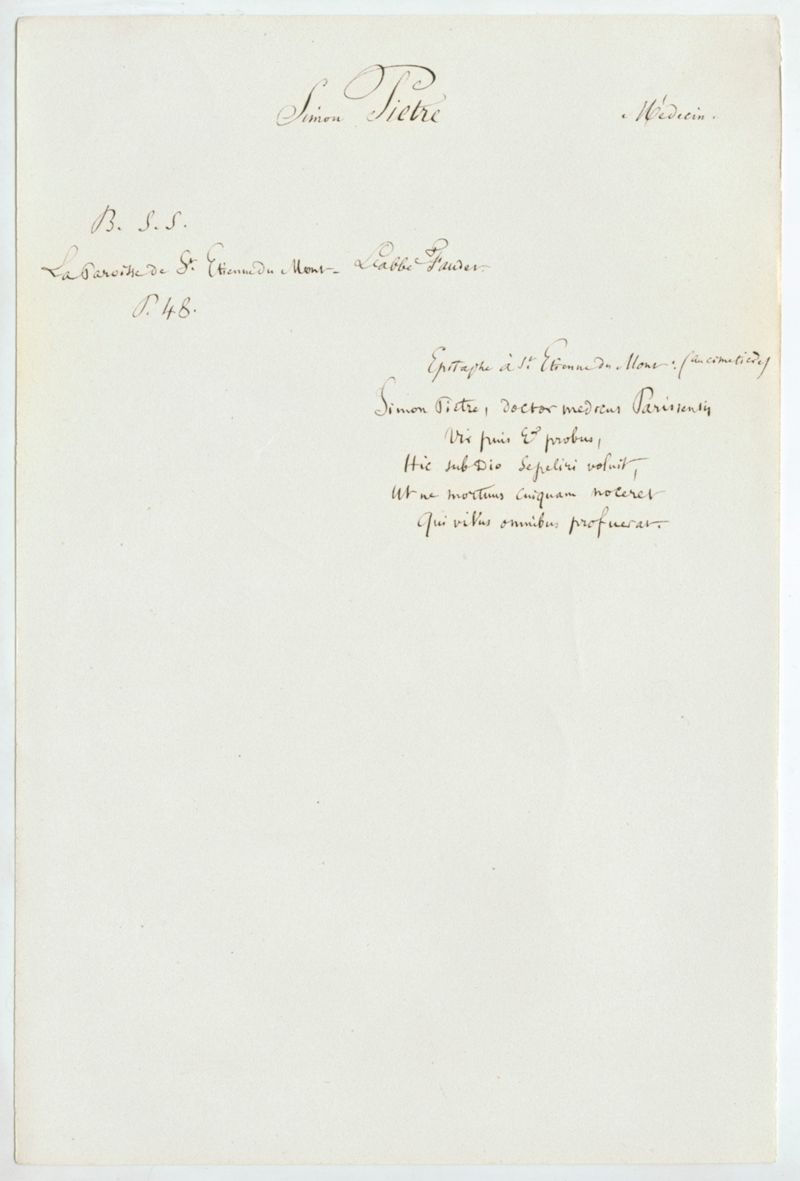 Simon Pietre Médecin.
B. S. S.
La Paroisse de St. Etienne du Mont - L'abbé Faudet.
P. 48.
Epitaphe à St Etienne du Mont : (au cimetière)
Simon Pietre, doctor medicus Parisiensis
Vir pius & probus,
Hic sub Dio sepeliri voluit,
Ut ne mortuus cuiquam noceret
Qui vivus omnibus profuerat.